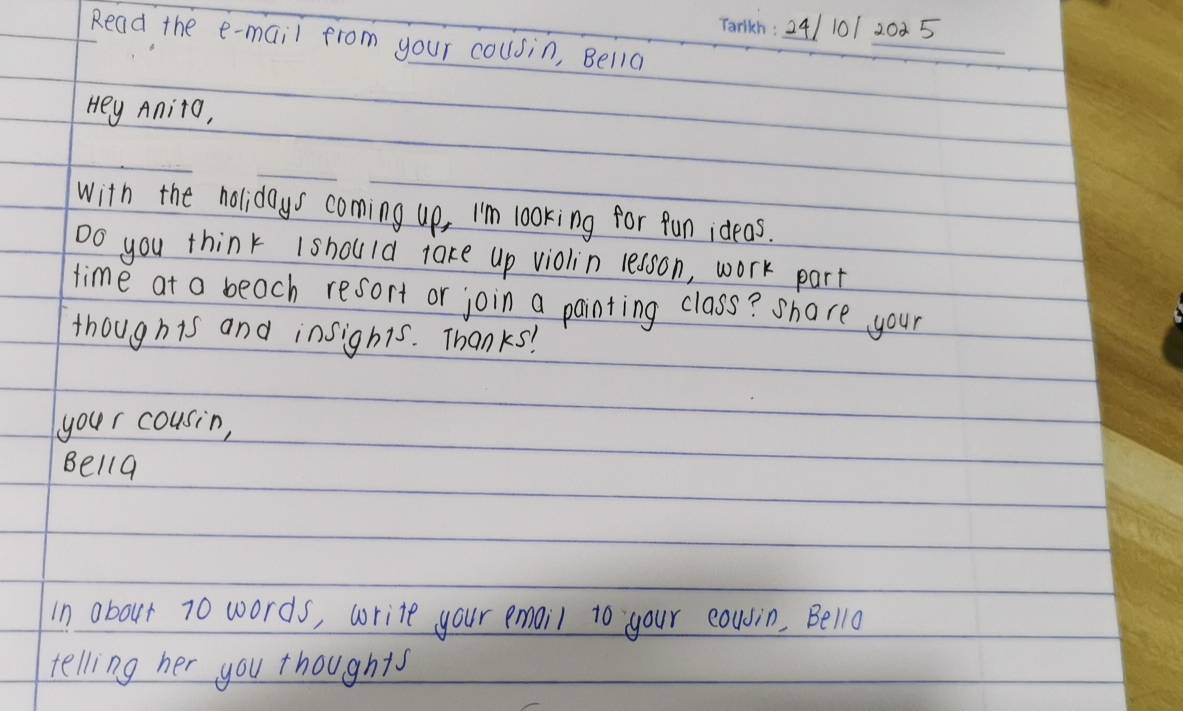 Read the e-mail from your cousin, Bella
Tarikh: 24/10/2025
Hey Anita,
With the holidays coming up, I'm looking for fun ideas.
Do you think I should take up violin lesson, work part
time at a beach resort or join a painting class? Share your
thoughts and insights. Thanks!
your cousin,
Bella
In about 70 words, write your email to your cousin, Bella
telling her you thoughts